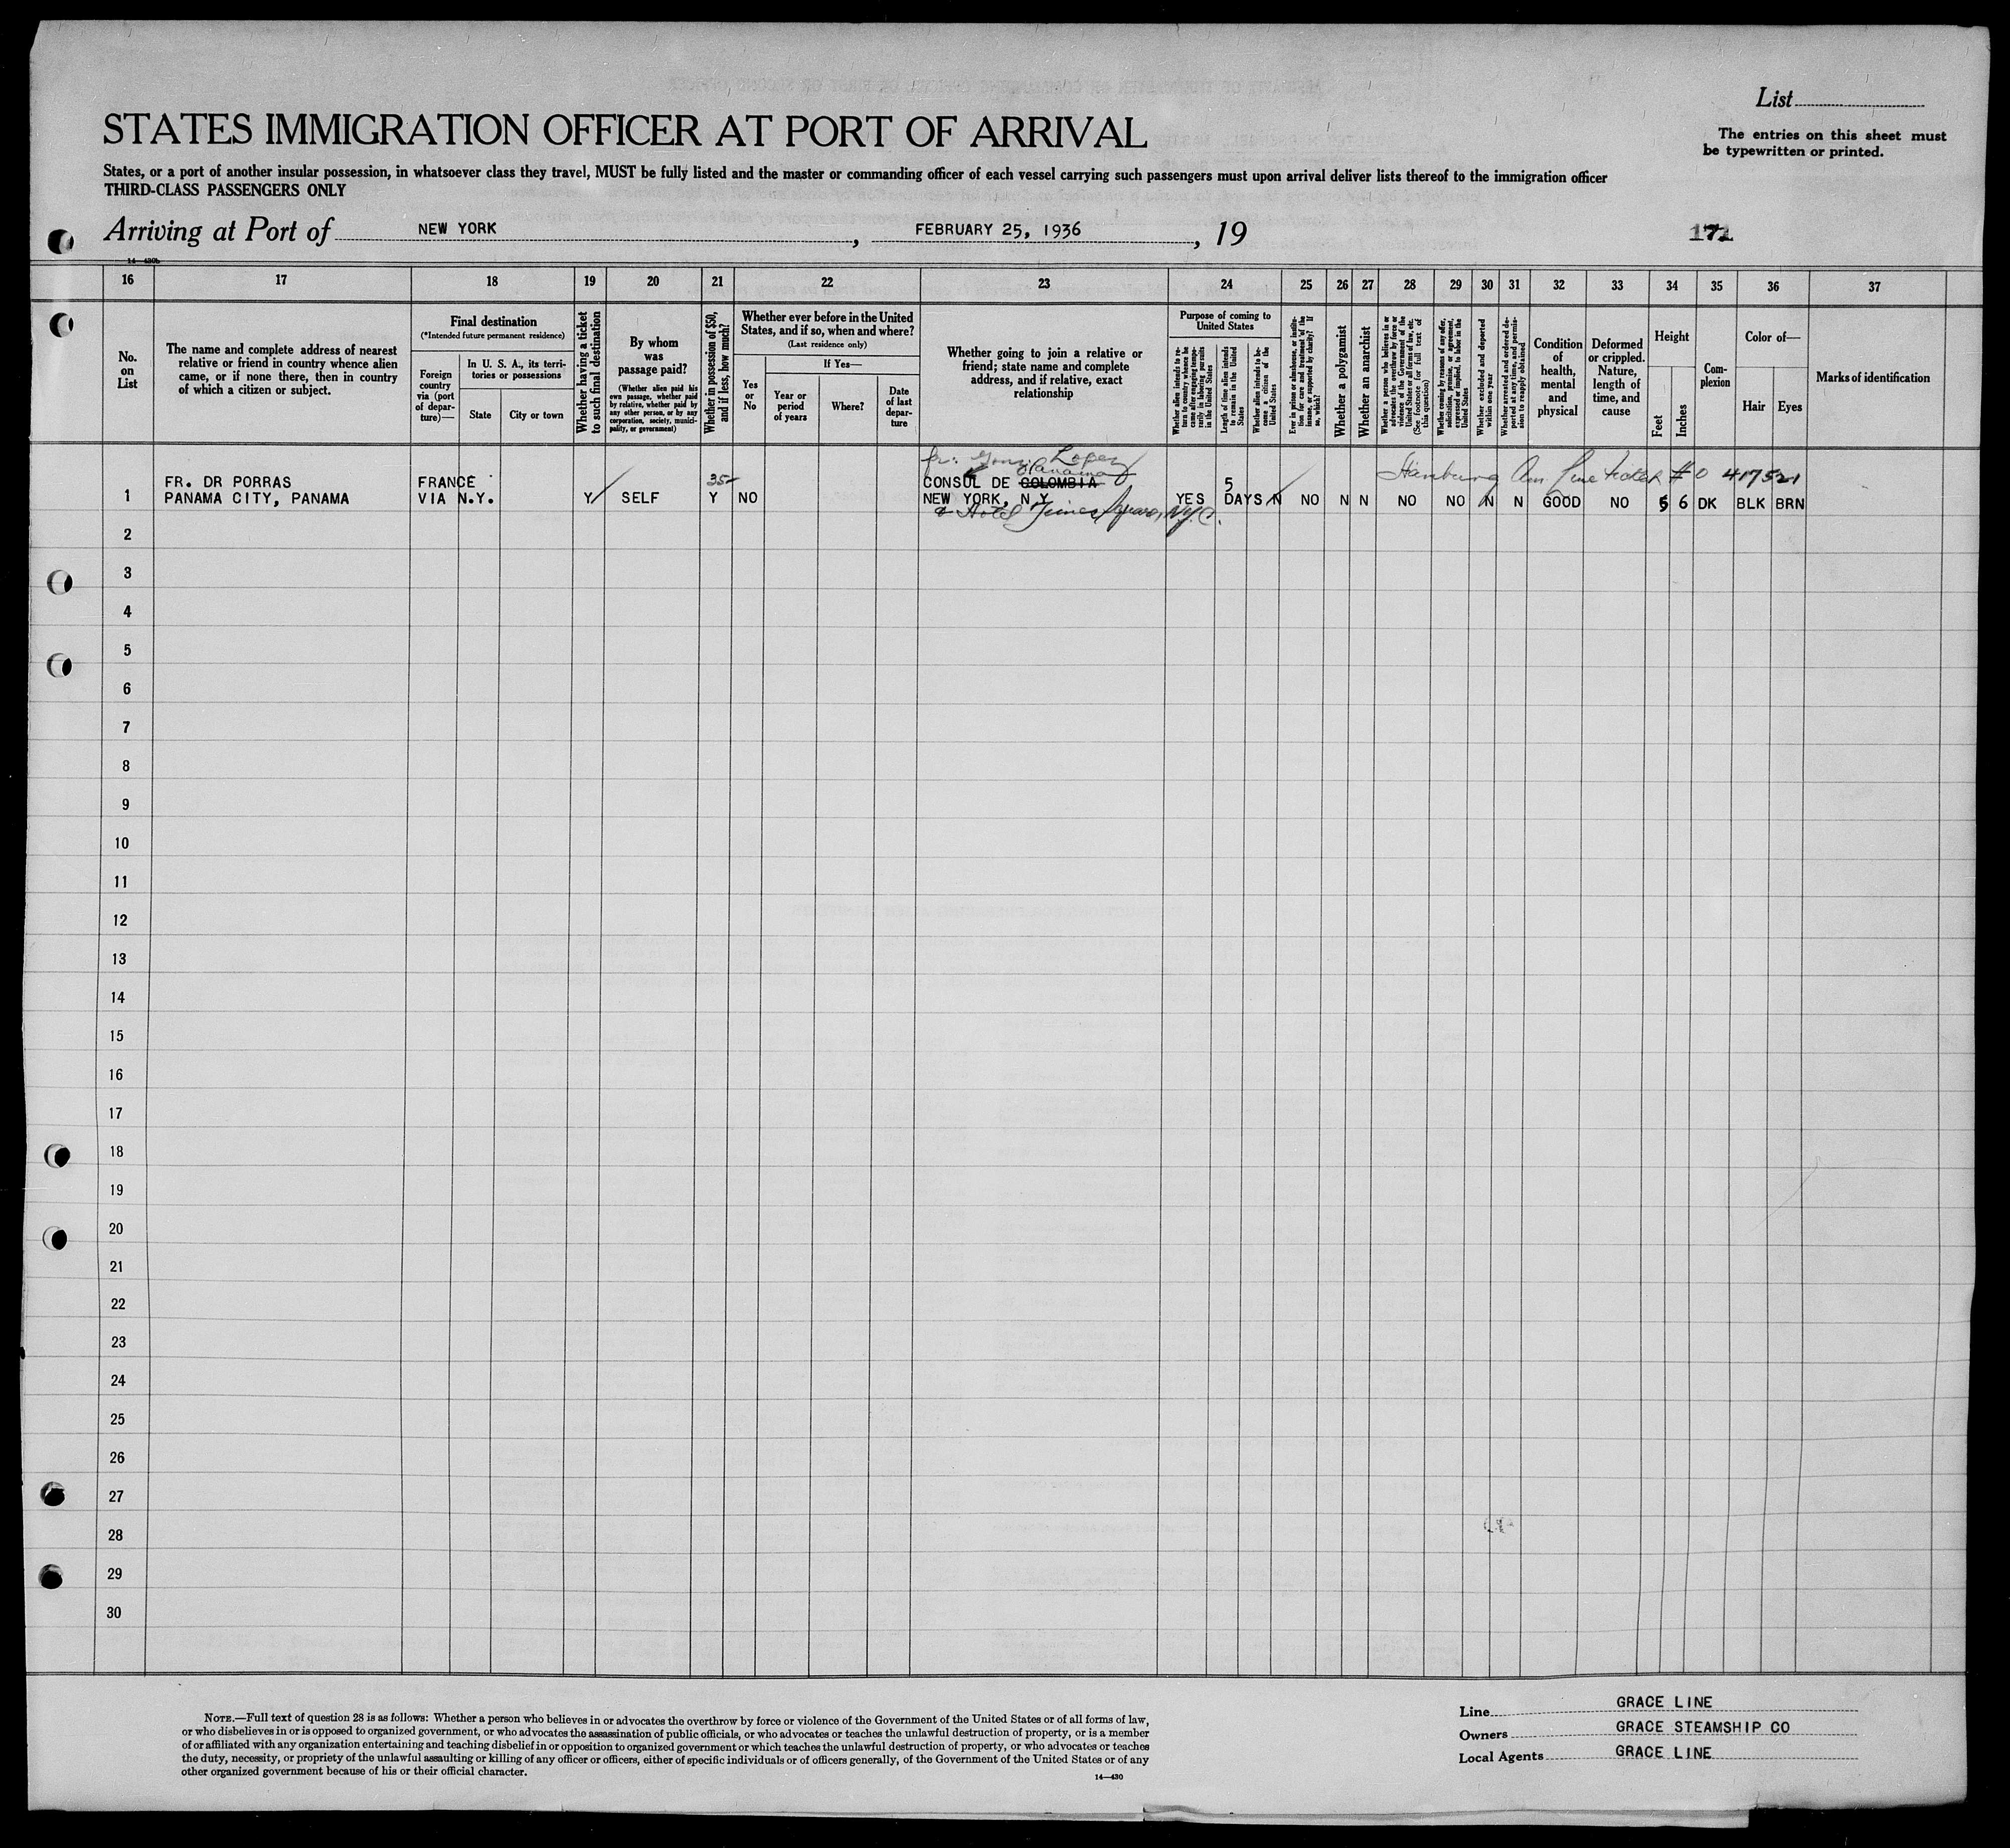 List
STATES IMMIGRATION OFFICER AT PORT OF ARRIVAL
The entries on this sheet must
be typewritten or printed.
States, or a port of another insular possession, in whatsoever class they travel, MUST be fully listed and the master or commanding officer of each vessel carrying such passengers must upon arrival deliver lists thereof to the immigration officer
THIRD-CLASS PASSENGERS ONLY
Arriving at Port of NEW YORK, FEBRUARY 25, 1936, 19
14—430b
16 17 18 19 20 21 22 23 24 25 26 27 28 29 30 31 32 33 34 35 36 37
No.
on
List
The name and complete address of nearest
relative or friend in country whence alien
came, or if none there, then in country
of which a citizen or subject.
Final destination
(*Intended future permanent residence)
Foreign
country
via (port
of depar-
ture)—
In U. S. A., its terri-
tories or possessions
State
City or town
Whether having a ticket
to such final destination
By whom
was
passage paid?
(Whether alien paid his
own passage, whether paid
by relative, whether paid by
any other person, or by any
corporation, society, munici-
pality, or government)
Whether in possession of $50,
and if less, how much?
Whether ever before in the United
States, and if so, when and where?
(Last residence only)
Yes
or
No
If Yes—
Year or
period
of years
Where?
Date
of last
depar-
ture
Whether going to join a relative or
friend; state name and complete
address, and if relative, exact
relationship
Purpose of coming to
United States
Whether alien intends to re-
turn to country whence he
came after engaging tempo-
rarily in laboring pursuits
in the United States
Length of time alien intends
to remain in the United
States
Whether alien intends to be-
come a citizen of the
United States
Ever in prison or almshouse, or institu-
tion for care and treatment of the
insane, or supported by charity? If
so, which?
Whether a polygamist
Whether an anarchist
Whether a person who believes in or
advocates the overthrow by force or
violence of the Government of the
United States or all forms of law, etc.
(See footnote for full text of
this question)
Whether coming by reason of any offer,
solicitation, promise, or agreement,
expressed or implied, to labor in the
United States
Whether excluded and deported
within one year
Whether arrested and ordered de-
ported at any time, and permis-
sion to reapply obtained
Condition
of
health,
mental
and
physical
Deformed
or crippled.
Nature,
length of
time, and
cause
Height
Feet
Inches
Com-
plexion
Color of—
Hair
Eyes
Marks of identification
Lopez
Panama
FR. DR PORRAS FRANCE 35 CONSUL DE COLOMBIA 5 Hamburg Am Line ticket # 0 417521
1 PANAMA CITY, PANAMA VIA N.Y. Y SELF Y NO NEW YORK, N Y YES DAYS N NO N N NO NO N N GOOD NO 5 6 DK BLK BRN
Hotel Times Square, N.Y.C.
2
3
4
5
6
7
8
9
10
11
12
13
14
15
16
17
18
19
20
21
22
23
24
25
26
27
28
29
30
NOTE.—Full text of question 28 is as follows: Whether a person who believes in or advocates the overthrow by force or violence of the Government of the United States or of all forms of law,
or who disbelieves in or is opposed to organized government, or who advocates the assassination of public officials, or who advocates or teaches the unlawful destruction of property, or is a member
of or affiliated with any organization entertaining and teaching disbelief in or opposition to organized government or which teaches the unlawful destruction of property, or who advocates or teaches
the duty, necessity, or propriety of the unlawful assaulting or killing of any officer or officers, either of specific individuals or of officers generally, of the Government of the United States or of any
other organized government because of his or their official character.
14—430
Line GRACE LINE
Owners GRACE STEAMSHIP CO
Local Agents GRACE LINE